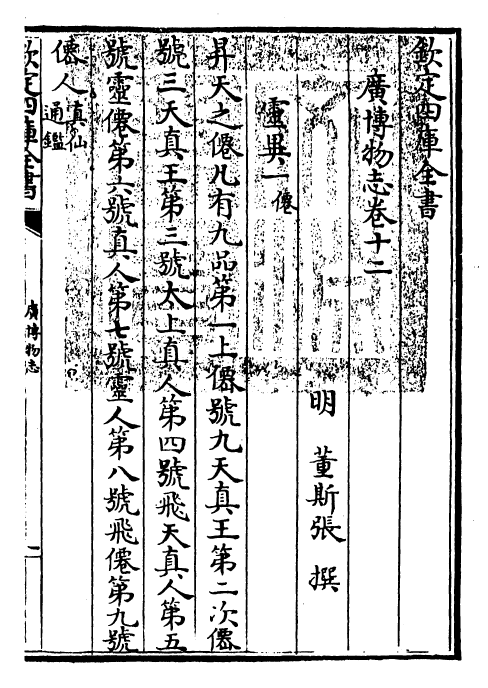 欽定四庫全書
廣博物志卷十二
明 董斯張 撰
靈異一僊
昇天之僊凡有九品第一上僊號九天真王第二次僊
號三天真王第三號太上真人第四號飛天真人第五
號靈僊第六號真人第七號靈人第八號飛僊第九號
僊人真仙通鑑
欽定四庫全書
廣博物志
一